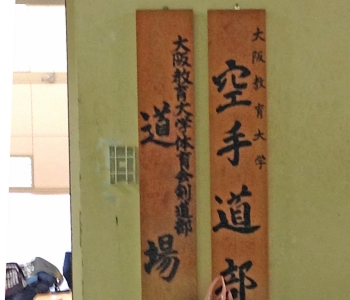 大阪教育大学
空手道部
大阪教育大学体育会剣道部
道場